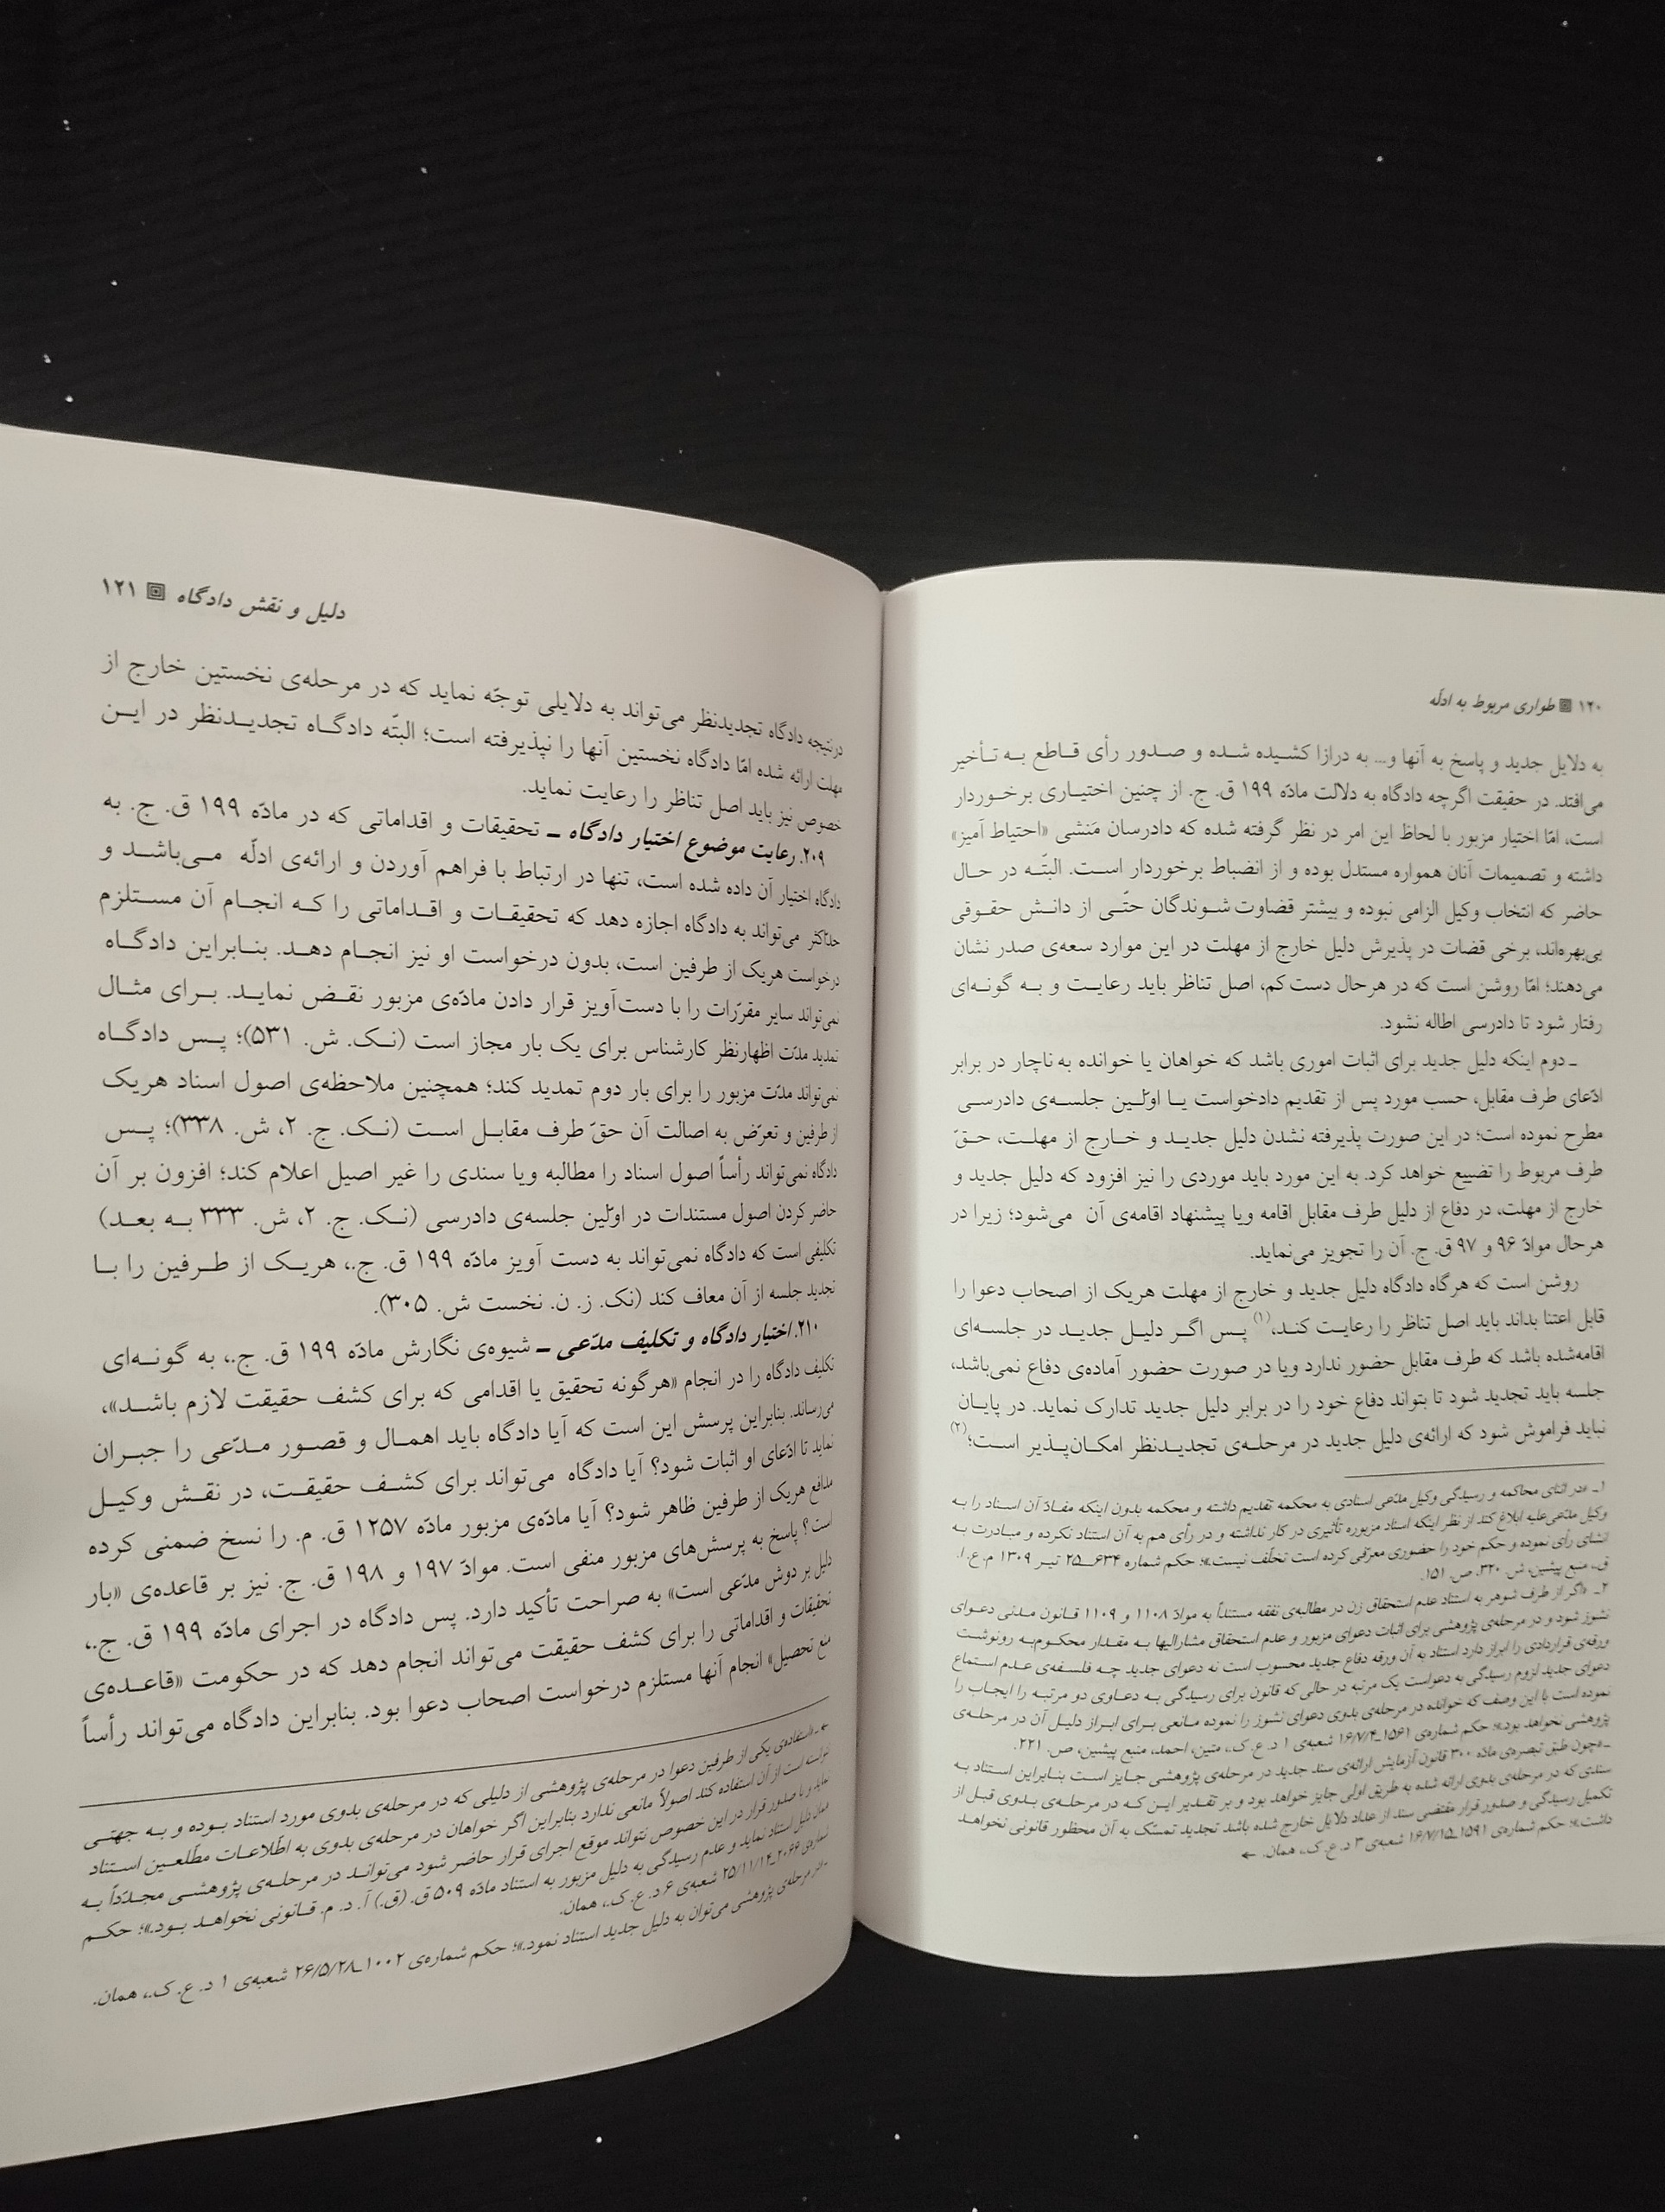 ۱۲۰ طواری مربوط به ادلّه
به دلایل جدید و پاسخ به آنها و... به درازا کشیده شده و صدور رأی قاطع به تأخیر
می‌افتد. در حقیقت اگرچه دادگاه به دلالت مادّه ۱۹۹ ق. ج. از چنین اختیاری برخوردار
است، امّا اختیار مزبور با لحاظ این امر در نظر گرفته شده که دادرسان مَنشی «احتیاط آمیز»
داشته و تصمیمات آنان همواره مستدل بوده و از انضباط برخوردار است. البتّه در حال
حاضر که انتخاب وکیل الزامی نبوده و بیشتر قضاوت شوندگان حتّی از دانش حقوقی
بی‌بهره‌اند، برخی قضات در پذیرش دلیل خارج از مهلت در این موارد سعه‌ی صدر نشان
می‌دهند؛ امّا روشن است که در هرحال دست‌کم، اصل تناظر باید رعایت و به گونه‌ای
رفتار شود تا دادرسی اطاله نشود.
ـ دوم اینکه دلیل جدید برای اثبات اموری باشد که خواهان یا خوانده به ناچار در برابر
ادّعای طرف مقابل، حسب مورد پس از تقدیم دادخواست یا اوّلین جلسه‌ی دادرسی
مطرح نموده است؛ در این صورت پذیرفته نشدن دلیل جدید و خارج از مهلت، حقّ
طرف مربوط را تضییع خواهد کرد. به این مورد باید موردی را نیز افزود که دلیل جدید و
خارج از مهلت، در دفاع از دلیل طرف مقابل اقامه ویا پیشنهاد اقامه‌ی آن می‌شود؛ زیرا در
هرحال موادّ ۹۶ و ۹۷ ق. ج. آن را تجویز می‌نماید.
روشن است که هرگاه دادگاه دلیل جدید و خارج از مهلت هریک از اصحاب دعوا را
قابل اعتنا بداند باید اصل تناظر را رعایت کند،(۱) پس اگر دلیل جدید در جلسه‌ای
اقامه‌شده باشد که طرف مقابل حضور ندارد ویا در صورت حضور آماده‌ی دفاع نمی‌باشد،
جلسه باید تجدید شود تا بتواند دفاع خود را در برابر دلیل جدید تدارک نماید. در پایان
نباید فراموش شود که ارائه‌ی دلیل جدید در مرحله‌ی تجدیدنظر امکان‌پذیر است؛(۲)
۱ـ «در اثنای محاکمه و رسیدگی وکیل مدّعی اسنادی به محکمه تقدیم داشته و محکمه بدون اینکه مفادّ آن اسناد را به
وکیل مدّعی‌علیه ابلاغ کند از نظر اینکه اسناد مزبوره تأثیری در کار نداشته و در رأی هم به آن استناد نکرده و مبادرت به
انشای رأی نموده و حکم خود را حضوری معرّفی کرده است تخلّف نیست.»؛ حکم شماره ۶۳۴ـ۲۵ تیر ۱۳۰۹ م. ع. ا.
ق.، منبع پیشین، ش. ۳۲۰، ص. ۱۵۱.
۲ـ «اگر از طرف شوهر به استناد عدم استحقاق زن در مطالبه‌ی نفقه مستنداً به موادّ ۱۱۰۸ و ۱۱۰۹ قانون مدنی دعوای
نشوز شود و در مرحله‌ی پژوهشی برای اثبات دعوای مزبور و عدم استحقاق مشارالیها به مقدار محکوم‌به رونوشت
ورقه‌ی قراردادی را ابراز دارد استناد به آن ورقه دفاع جدید محسوب است نه دعوای جدید چه فلسفه‌ی عدم استماع
دعوای جدید لزوم رسیدگی به دعواست یک مرتبه در حالی که قانون برای رسیدگی به دعاوی دو مرتبه را ایجاب را
نموده است با این وصف که خوانده در مرحله‌ی بدوی دعوای نشوز را نموده مانعی برای ابراز دلیل آن در مرحله‌ی
پژوهشی نخواهد بود.»؛ حکم شماره‌ی ۱۵۶۱ـ۱۶/۷/۴ شعبه‌ی ۱ د. ع. ک.، متین، احمد، منبع پیشین، ص. ۲۲۱.
ـ «چون طبق تبصره‌ی مادّه ۳۰۰ قانون آزمایش ارائه‌ی سند جدید در مرحله‌ی پژوهشی جایز است بنابراین استناد به
سندی که در مرحله‌ی بدوی ارائه شده به طریق اولی جایز خواهد بود و بر تقدیر این که در مرحله‌ی بدوی قبل از
تکمیل رسیدگی و صدور قرار مقتضی سند از عداد دلایل خارج شده باشد تجدید تمسّک به آن محظور قانونی نخواهد
داشت.»؛ حکم شماره‌ی ۱۵۹۱ـ۱۶/۷/۱۵ شعبه‌ی ۳ د. ع. ک.، همان. ←
دلیل و نقش دادگاه ۱۲۱
درنتیجه دادگاه تجدیدنظر می‌تواند به دلایلی توجّه نماید که در مرحله‌ی نخستین خارج از
مهلت ارائه شده امّا دادگاه نخستین آنها را نپذیرفته است؛ البتّه دادگاه تجدیدنظر در این
خصوص نیز باید اصل تناظر را رعایت نماید.
۲۰۹. رعایت موضوع اختیار دادگاه ـ تحقیقات و اقداماتی که در مادّه ۱۹۹ ق. ج. به
دادگاه اختیار آن داده شده است، تنها در ارتباط با فراهم آوردن و ارائه‌ی ادلّه می‌باشد و
حدّاکثر می‌تواند به دادگاه اجازه دهد که تحقیقات و اقداماتی را که انجام آن مستلزم
درخواست هریک از طرفین است، بدون درخواست او نیز انجام دهد. بنابراین دادگاه
نمی‌تواند سایر مقرّرات را با دست‌آویز قرار دادن مادّه‌ی مزبور نقض نماید. برای مثال
تمدید مدّت اظهارنظر کارشناس برای یک بار مجاز است (نک. ش. ۵۳۱)؛ پس دادگاه
نمی‌تواند مدّت مزبور را برای بار دوم تمدید کند؛ همچنین ملاحظه‌ی اصول اسناد هریک
از طرفین و تعرّض به اصالت آن حقّ طرف مقابل است (نک. ج. ۲، ش. ۳۳۸)؛ پس
دادگاه نمی‌تواند رأساً اصول اسناد را مطالبه ویا سندی را غیر اصیل اعلام کند؛ افزون بر آن
حاضر کردن اصول مستندات در اوّلین جلسه‌ی دادرسی (نک. ج. ۲، ش. ۳۳۳ به بعد)
تکلیفی است که دادگاه نمی‌تواند به دست آویز مادّه ۱۹۹ ق. ج.، هریک از طرفین را با
تجدید جلسه از آن معاف کند (نک. ز. ن. نخست ش. ۳۰۵).
۲۱۰. اختیار دادگاه و تکلیف مدّعی ـ شیوه‌ی نگارش مادّه ۱۹۹ ق. ج.، به گونه‌ای
تکلیف دادگاه را در انجام «هرگونه تحقیق یا اقدامی که برای کشف حقیقت لازم باشد»،
می‌رساند. بنابراین پرسش این است که آیا دادگاه باید اهمال و قصور مدّعی را جبران
نماید تا ادّعای او اثبات شود؟ آیا دادگاه می‌تواند برای کشف حقیقت، در نقش وکیل
مدافع هریک از طرفین ظاهر شود؟ آیا مادّه‌ی مزبور مادّه ۱۲۵۷ ق. م. را نسخ ضمنی کرده
است؟ پاسخ به پرسش‌های مزبور منفی است. موادّ ۱۹۷ و ۱۹۸ ق. ج. نیز بر قاعده‌ی «بار
دلیل بر دوش مدّعی است» به صراحت تأکید دارد. پس دادگاه در اجرای مادّه ۱۹۹ ق. ج.،
تحقیقات و اقداماتی را برای کشف حقیقت می‌تواند انجام دهد که در حکومت «قاعده‌ی
منع تحصیل» انجام آنها مستلزم درخواست اصحاب دعوا بود. بنابراین دادگاه می‌تواند رأساً
←ـ «استفاده‌ی یکی از طرفین دعوا در مرحله‌ی پژوهشی از دلیلی که در مرحله‌ی بدوی مورد استناد بوده و به جهتی
نتوانسته است از آن استفاده کند اصولاً مانعی ندارد بنابراین اگر خواهان در مرحله‌ی بدوی به اطّلاعات مطّلعین استناد
نماید و با صدور قرار در این خصوص نتواند موقع اجرای قرار حاضر شود می‌تواند در مرحله‌ی پژوهشی مجدّداً به
همان دلیل استناد نماید و عدم رسیدگی به دلیل مزبور به استناد مادّه ۵۰۹ ق. (ق.) آ. د. م. قانونی نخواهد بود.»؛ حکم
شماره‌ی ۲۰۶۶ـ۲۵/۱۱/۱۴ شعبه‌ی ۶ د. ع. ک.، همان.
ـ «در مرحله‌ی پژوهشی می‌توان به دلیل جدید استناد نمود.»؛ حکم شماره‌ی ۱۰۰۲ـ۲۶/۵/۲۸ شعبه‌ی ۱ د. ع. ک.، همان.